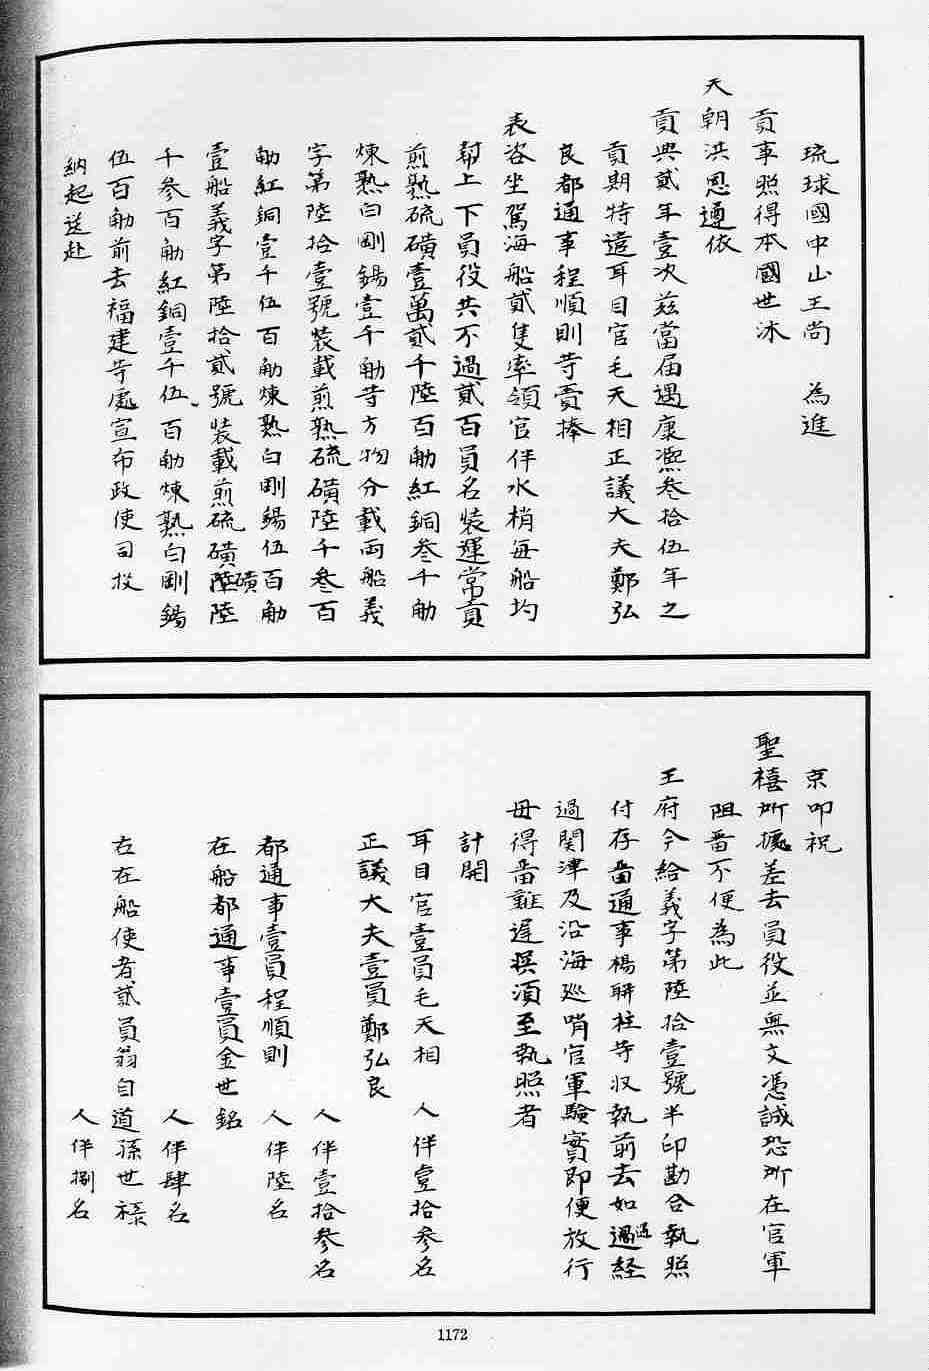 琉球國中山王尚　為進
貢事照得本國世沐
天朝洪恩遵依
貢典貳年壹次茲當届遇康熙叁拾伍年之
貢期特遣耳目官毛天相正議大夫鄭弘
良都通事程順則等賫捧
表咨坐駕海船貳隻率領官伴水梢每船均
幇上下員役共不過貳百員名裝運常貢
煎熟硫磺壹萬貳千陸百觔紅銅叁千觔
煉熟白剛錫壹千觔等方物分載両船義
字第陸拾壹號裝載煎熟硫磺陸千叁百
觔紅銅壹千伍百觔煉熟白剛錫伍百觔
壹船義字第陸拾貳號裝載煎硫磺陸磺陸
千參百觔紅銅壹千伍百觔煉熟白剛錫
伍百觔前去福建等處宣布政使司投
納起送赴
京叩祝
聖禧所據差去員役並無文憑誠恐所在官軍
阻畱不便為此
王府今給義字第陸拾壹號半印勘合執照
付存畱通事楊聯柱等収執前去如過遇経
過関津及沿海巡哨官軍驗實即便放行
毋得畱難遲悞須至執照者
計開
耳目官壹員毛天相　人伴壹拾參名
正議大夫壹員鄭弘良　人伴壹拾參名
都通事壹員程順則　人伴陸名
在船都通事壹員金世銘　人伴肆名
右在船使者貳員翁自道孫世祿　人伴捌名
1172